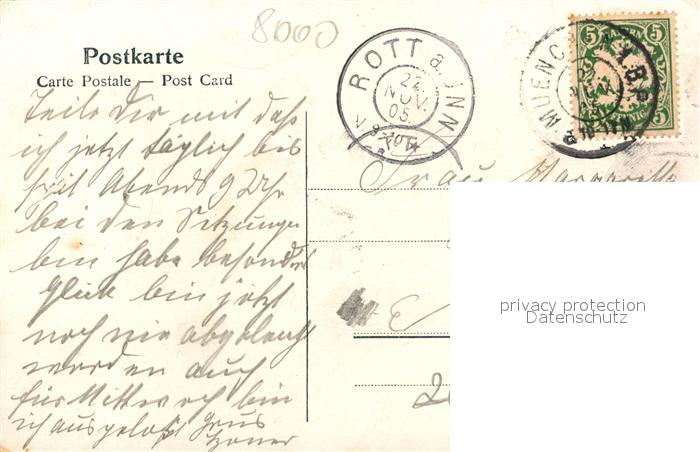 8000
Postkarte
Carte Postale — Post Card
Teile Dir mit daß
ich jetzt täglich bis
früh Abends 9 Uhr
bei den Sitzungen
bin habe besonders
Glück bin jetzt
noch nie abgelenkt
worden auch
für Mittwoch bin
ich ausgelost Gruß
ROTT a. INN
22
NOV.
05.
MUENCHEN
5
5
5
5
Frau Margarethe
privacy protection
Datenschutz